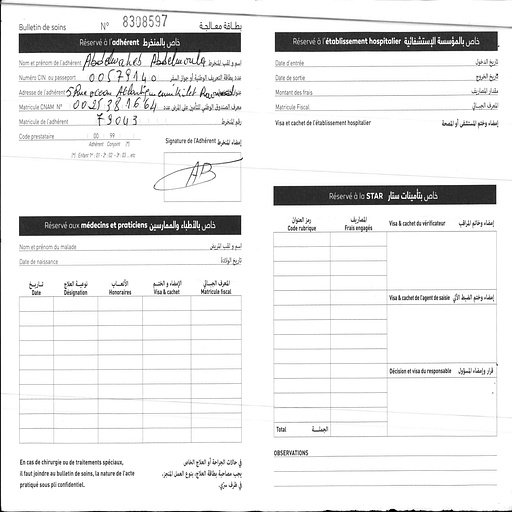 Bulletin de soins N° 8308597 بطاقة معالجة
Réservé à l'adhérent خاص بالمنخرط
Nom et prénom de l'adhérent Abdelwaheb Abdelmoula اسم و لقب المنخرط
Numéro CIN ou passeport 00579140 عدد بطاقة التعريف الوطنية أو جواز السفر
Adresse de l'adhérent 5 Rue ocean Atlantique
Matricule CNAM N° 0025381664 معرف الصندوق الوطني للتأمين على المرض عدد
Matricule de l'adhérent 79043 رقم المنخرط
Code prestataire 00 99 Signature de l'Adhérent إمضاء المنخرط
Adhérent Conjoint (*)
(*), Enfant 1er : 01 - 2è : 02 - 3è : 03 .. etc
AB
Réservé aux médecins et praticiens خاص بالأطباء والممارسين
Nom et prénom du malade اسم و لقب المريض
Date de naissance تاريخ الولادة
تاريخ نوعية العلاج الأتعاب الإمضاء و الختم المعرف الجبائي
Date Désignation Honoraires Visa & cachet Matricule fiscal
En cas de chirurgie ou de traitements spéciaux,
il faut joindre au bulletin de soins, la nature de l'acte
pratiqué sous pli confidentiel.
في حالات الجراحة أو العلاج الخاص
يجب مصاحبة بطاقة العلاج، بنوع العمل المنجز،
في ظرف سري.
Réservé à l'établissement hospitalier خاص بالمؤسسة الإستشفائية
Date d'entrée تاريخ الدخول
Date de sortie تاريخ الخروج
Montant des frais مقدار المصاريف
Matricule Fiscal المعرف الجبائي
Visa et cachet de l'établissement hospitalier إمضاء وختم المستشفى أو المصحة
Réservé à la STAR خاص بتأمينات ستار
رمز العنوان المصاريف Visa & cachet du vérificateur إمضاء وخاتم المراقب
Code rubrique Frais engagés
Visa & cachet de l'agent de saisie إمضاء وختم الضبط الآلي
Décision et visa du responsable قرار وإمضاء المسؤول
Total الجملة
OBSERVATIONS